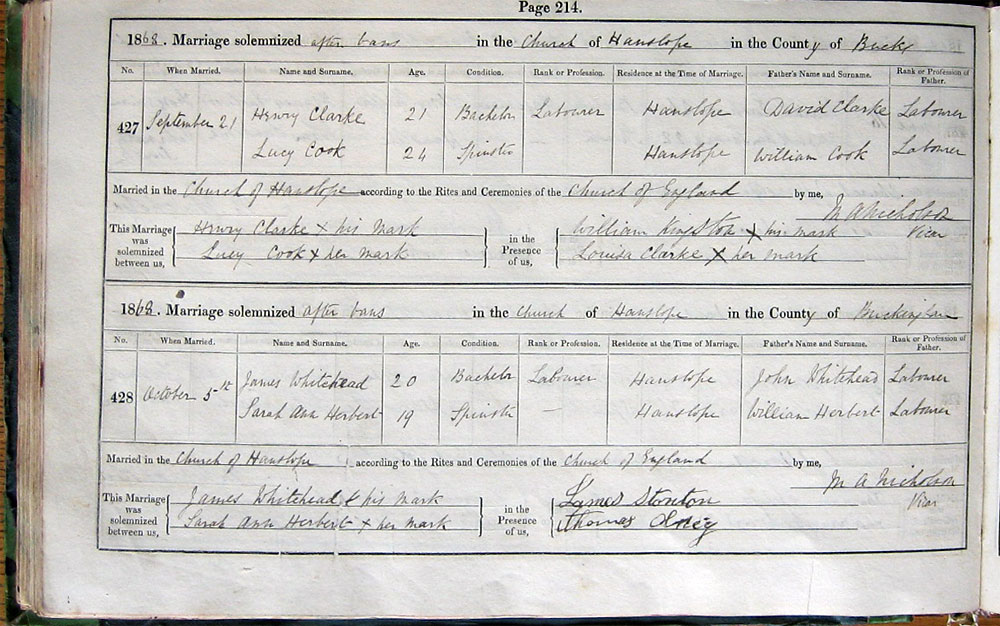 Page 214.
1868. Marriage solemnized after bans in the Church of Hanslope in the County of Bucks
No. When Married. Name and Surname. Age. Condition. Rank or Profession. Residence at the Time of Marriage. Father's Name and Surname. Rank or Profession of Father.
427 September 21 Henry Clarke 21 Bachelor Labourer Hanslope David Clarke Labourer
Lucy Cook 24 Spinster Hanslope William Cook Labourer
Married in the Church of Hanslope according to the Rites and Ceremonies of the Church of England by me,
M A Nicholson
Vicar
This Marriage was solemnized between us, Henry Clarke x his mark in the Presence of us, William Kingston x his mark
Lucy Cook x her mark Louisa Clarke x her mark
1868. Marriage solemnized after bans in the Church of Hanslope in the County of Buckingham
No. When Married. Name and Surname. Age. Condition. Rank or Profession. Residence at the Time of Marriage. Father's Name and Surname. Rank or Profession of Father.
428 October 5th James Whitehead 20 Bachelor Labourer Hanslope John Whitehead Labourer
Sarah Ann Herbert 19 Spinster — Hanslope William Herbert Labourer
Married in the Church of Hanslope according to the Rites and Ceremonies of the Church of England by me,
M A Nicholson
Vicar
This Marriage was solemnized between us, James Whitehead x his mark in the Presence of us, Stonton
Sarah Ann Herbert x her mark Thomas